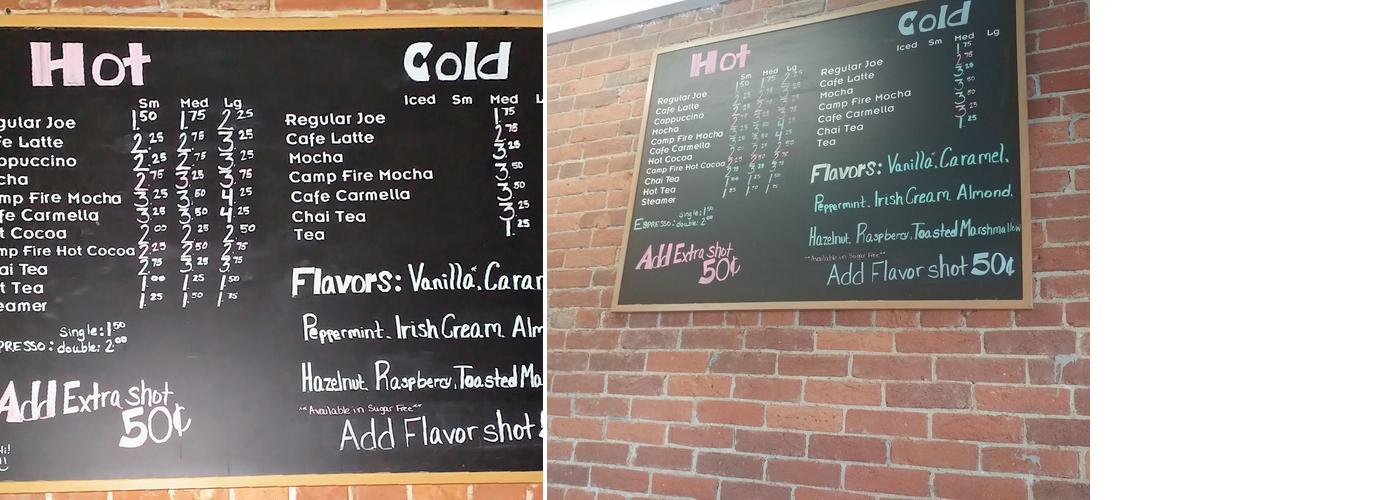 Hot
Sm Med Lg
gular Joe 1.50 1.75 2.25
fe Latte 2.25 2.75 3.25
ppuccino 2.25 2.75 3.25
cha 2.75 3.25 3.75
mp Fire Mocha 3.25 3.50 4.25
fe Carmella 3.25 3.50 4.25
t Cocoa 2.00 2.25 2.50
mp Fire Hot Cocoa 2.25 2.50 2.75
ai Tea 2.75 3.25 3.75
t Tea 1.00 1.25 1.50
eamer 1.25 1.50 1.75
Single: 1.50
PRESSO: double: 2.00
Add Extra shot
50¢
Hi!
Cold
Iced Sm Med L
Regular Joe 1.75
Cafe Latte 2.75
Mocha 3.25
Camp Fire Mocha 3.50
Cafe Carmella 3.50
Chai Tea 3.25
Tea 1.25
Flavors: Vanilla, Caram
Peppermint, Irish Cream, Alm
Hazelnut, Raspberry, Toasted Ma
**Available in Sugar Free**
Add Flavor shot
Hot
Sm Med Lg
Regular Joe
Cafe Latte
Cappuccino
Mocha
Camp Fire Mocha
Cafe Carmella
Hot Cocoa
Camp Fire Hot Cocoa
Chai Tea
Hot Tea
Steamer
Single: 1.50
ESPRESSO: double: 2.00
Add Extra shot
50¢
Cold
Iced Sm Med Lg
Regular Joe 1.75
Cafe Latte 2.75
Mocha 3.25
Camp Fire Mocha 3.50
Cafe Carmella 3.50
Chai Tea 3.25
Tea 1.25
Flavors: Vanilla, Caramel,
Peppermint, Irish Cream, Almond,
Hazelnut, Raspberry, Toasted Marshmallow
**Available in Sugar Free**
Add Flavor shot 50¢